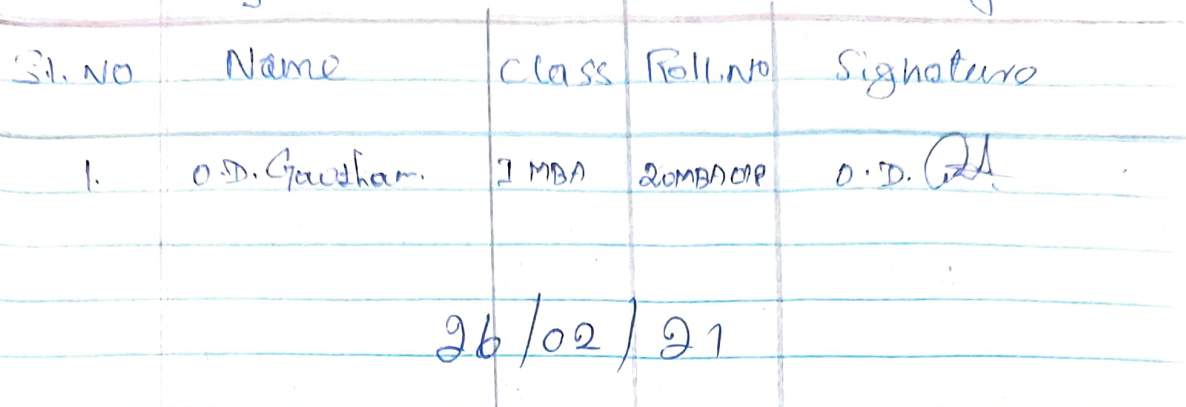 Sl. No Name Class Roll.No Signature
1. O.D. Gowtham. I MBA O.D.
26/02/21